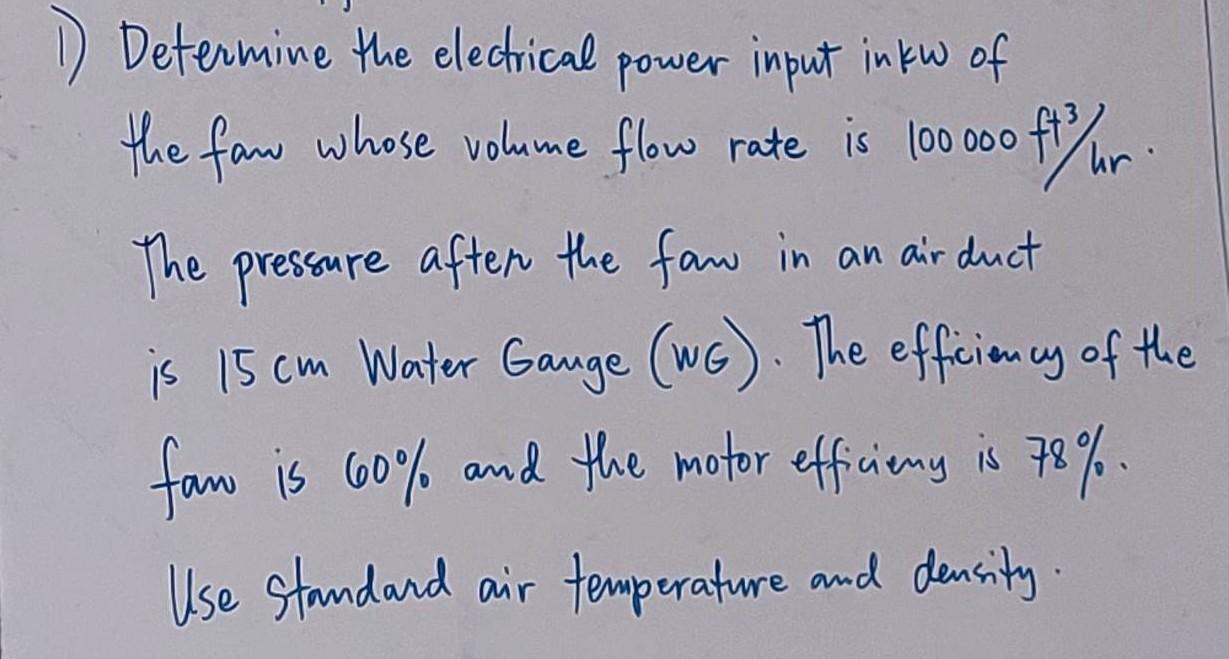 1) Determine the electrical power input in kw of
the fan whose volume flow rate is 100 000 ft³/hr.
The pressure after the fan in an air duct
is 15 cm Water Gauge (WG). The efficiency of the
fan is 60% and the motor efficieny is 78%.
Use standard air temperature and density.